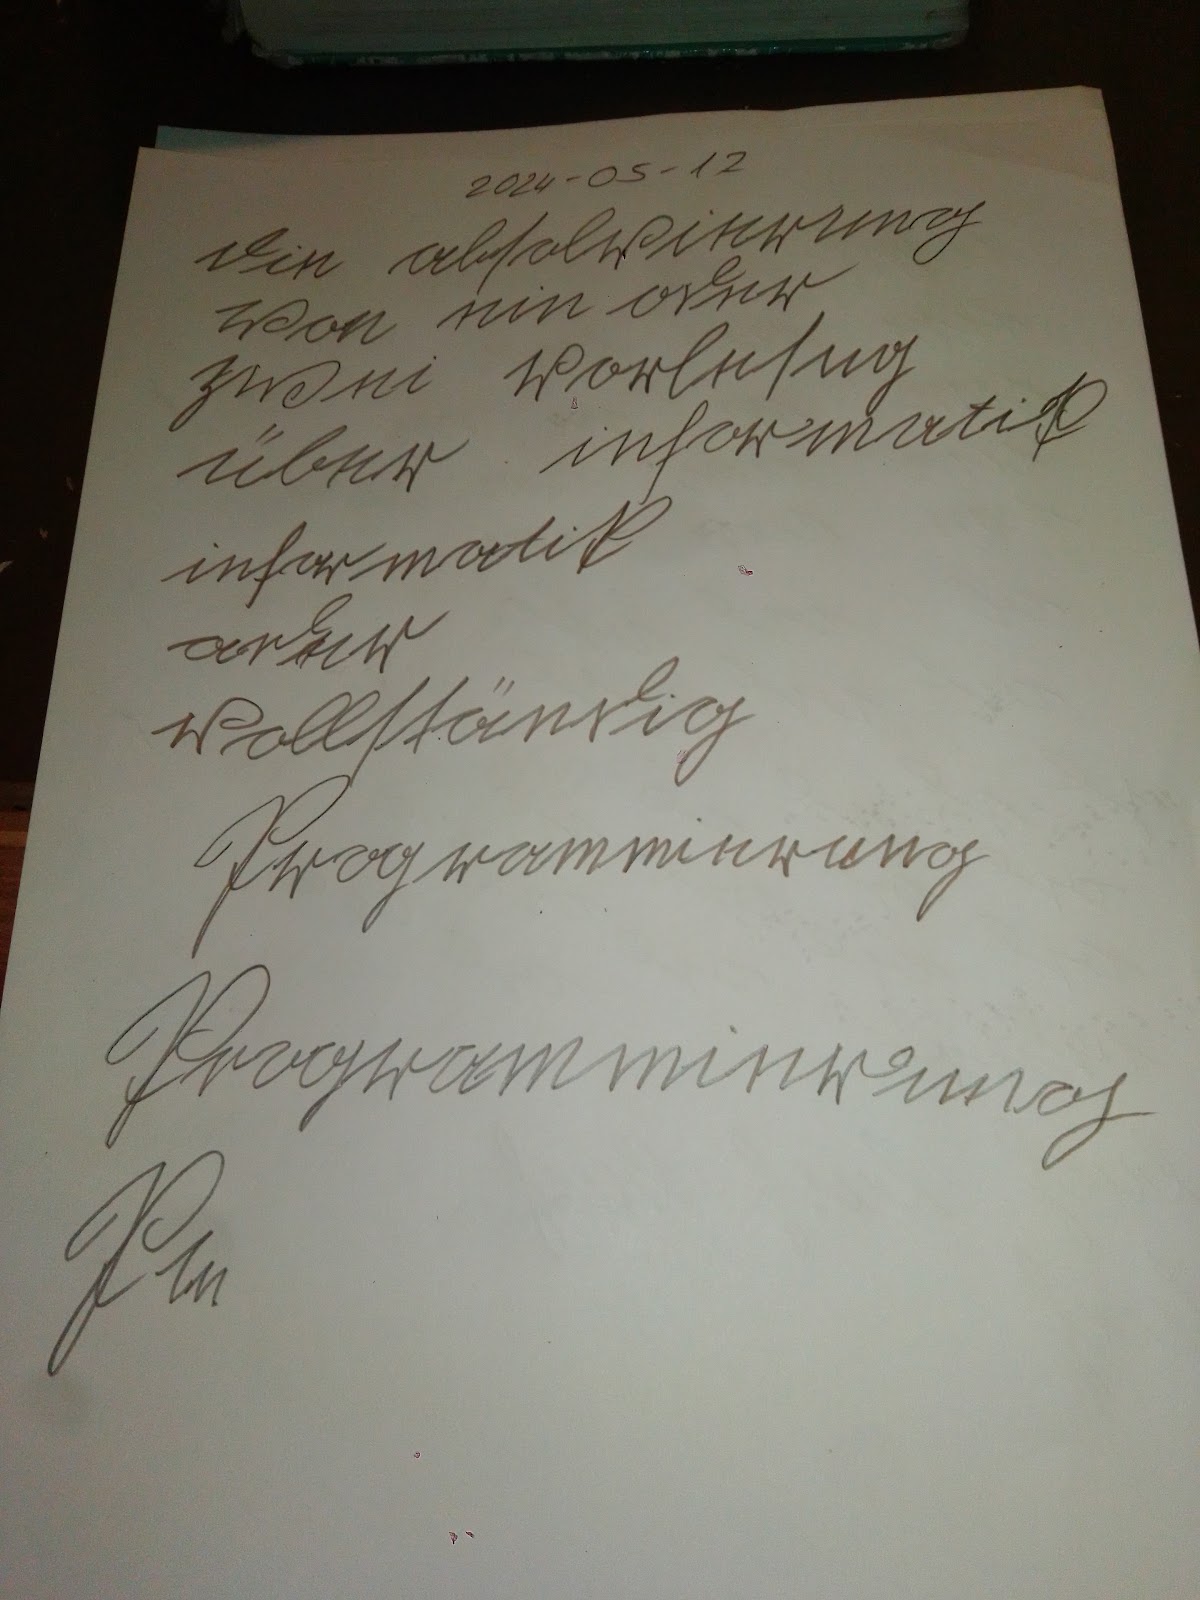 2024-05-12
die absolvierung
von ein oder
zwei vorlesug
über informatik
informatik
oder
vollständig
Programmierung
Programmierung